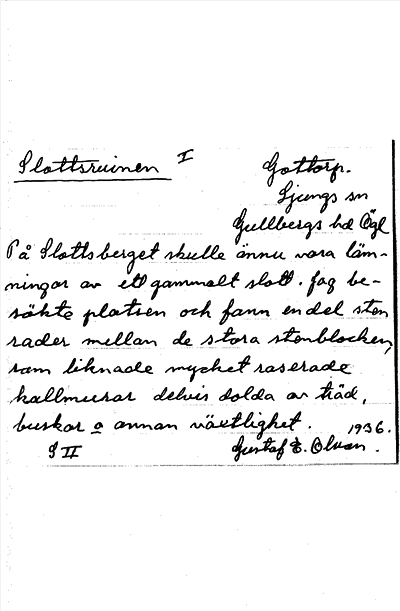 Slottsruinen I
Gottorp.
Ljungs sn
Gullbergs hd Ögl
På Slottsberget skulle ännu vara läm-
ningar av ett gammalt slott. Jag be-
sökte platsen och fann en del sten
rader mellan de stora stenblocken,
som liknade mycket raserade
kallmurar delvis dolda av träd,
buskar o annan växtlighet. 1936.
S II Gustaf E. Olson.